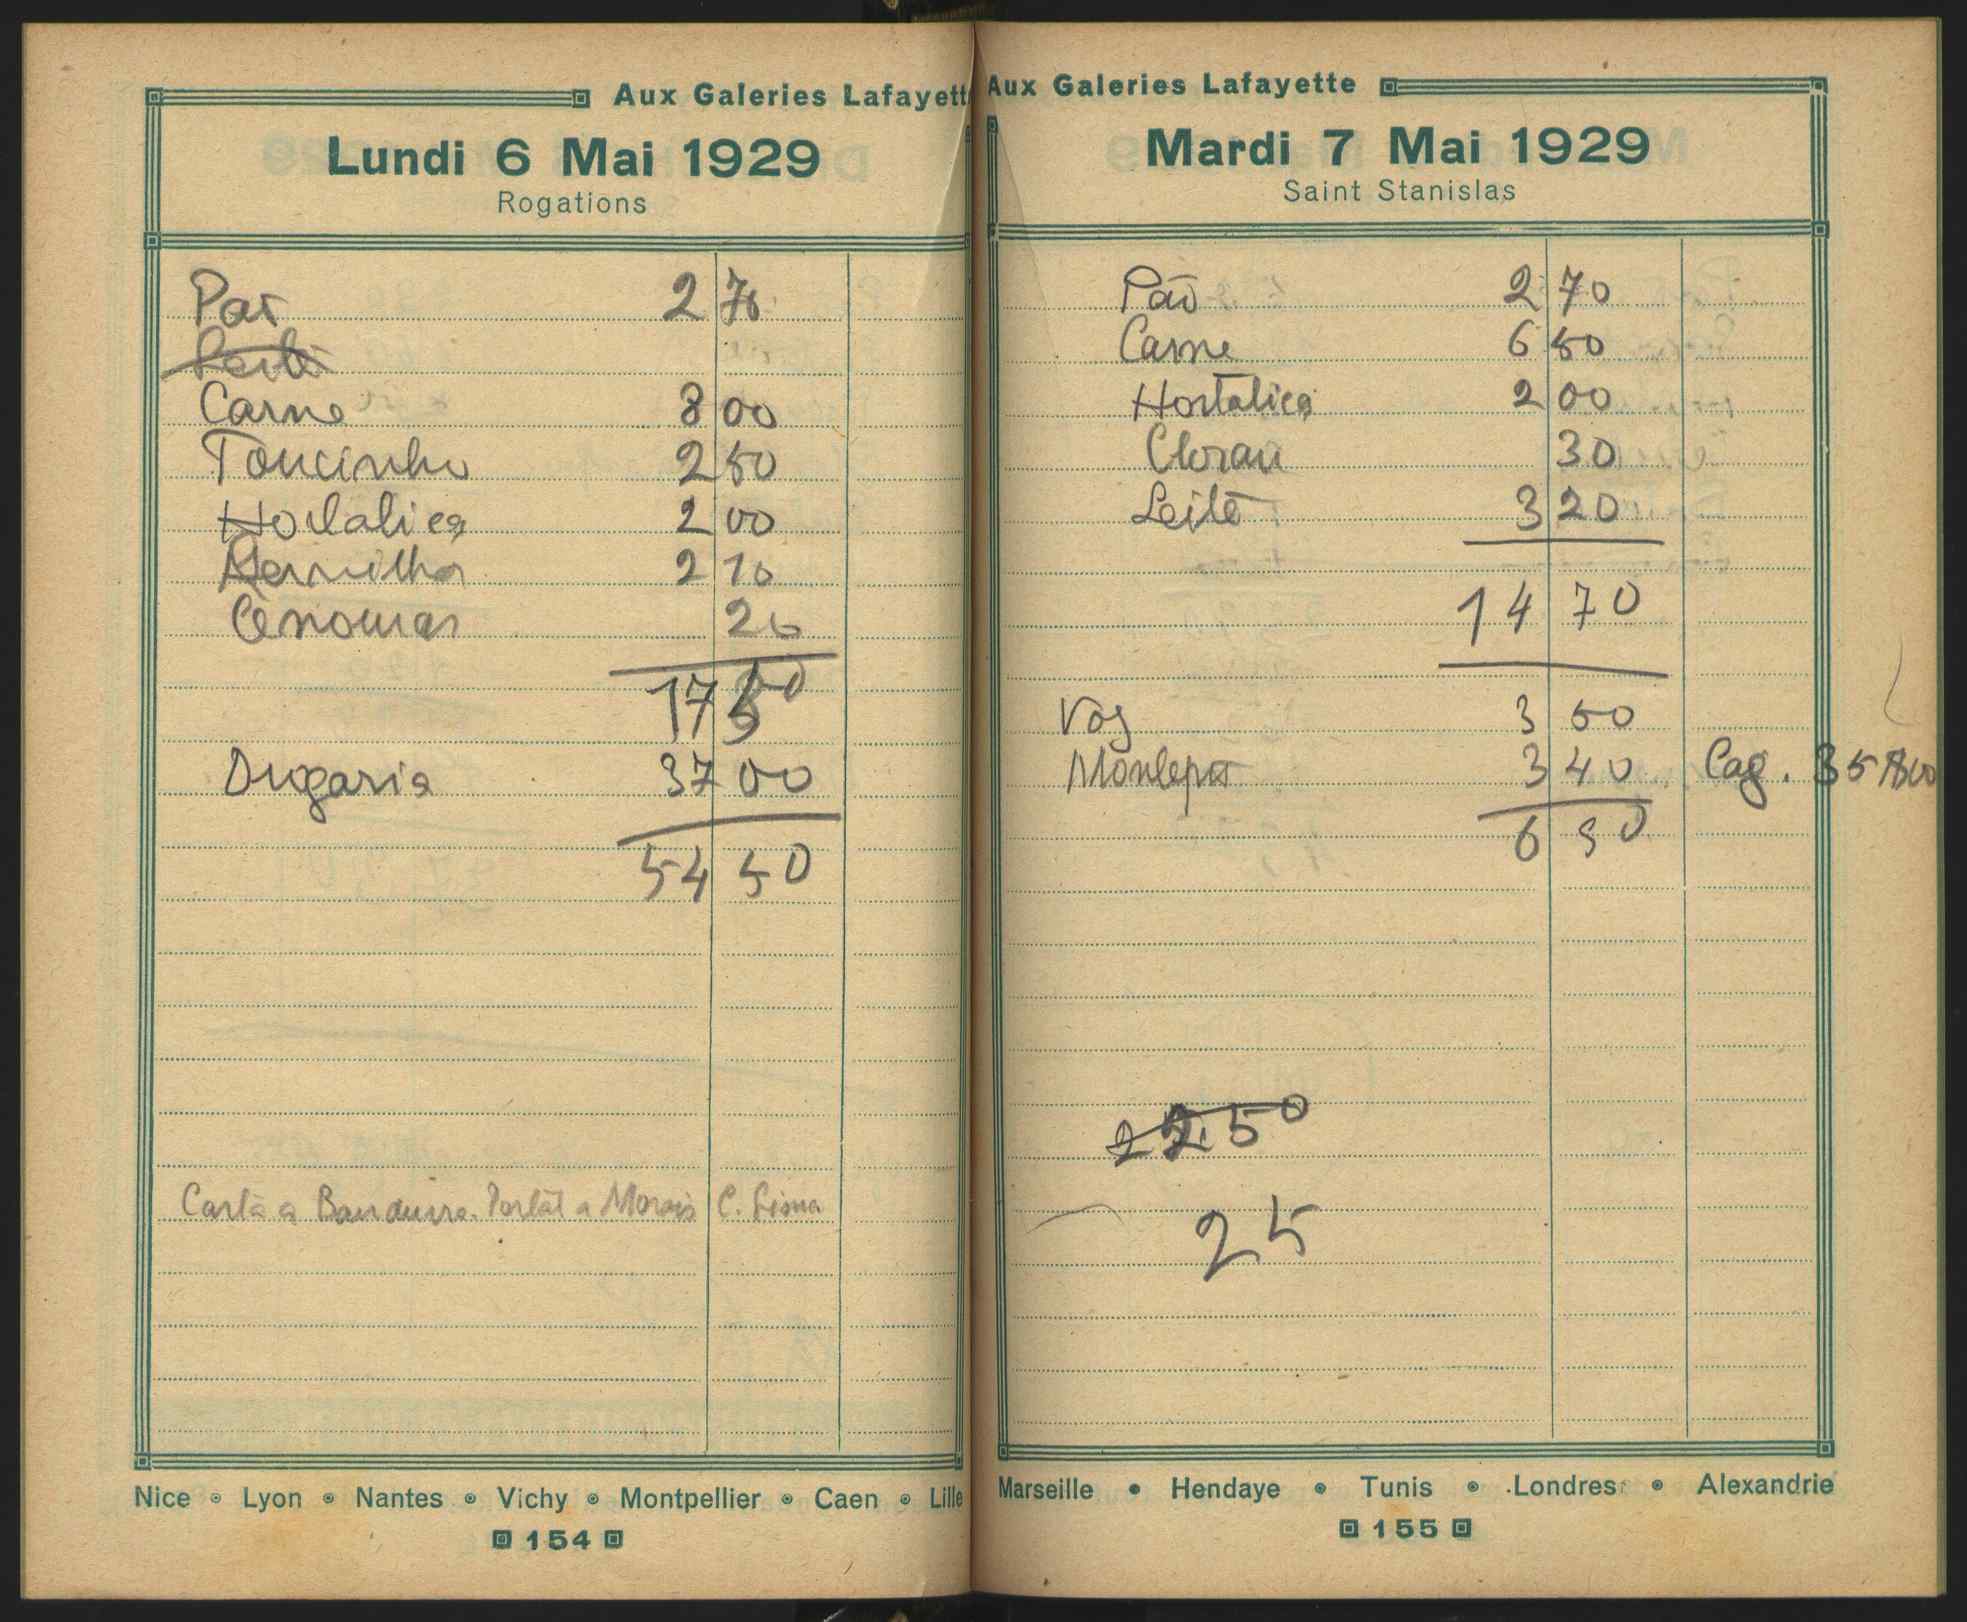 Aux Galeries Lafayett
Lundi 6 Mai 1929
Rogations
Pao 2 70
Leite
Carne 8 00
Toucinho 2 50
Hortaliça 2 00
Hervilha 2 10
Cenouras 20
17 50
Drogaria 37 00
54 50
Carta a Bandeira. Portát a Morais C. Lima
Nice Lyon Nantes Vichy Montpellier Caen Lille
154
Aux Galeries Lafayette
Mardi 7 Mai 1929
Saint Stanislas
Pão 2 70
Carne 6 50
Hortaliça 2 00
30
Leite 3 20
14 70
3 50
Montepio 3 40
6 90
2250
25
Marseille Hendaye Tunis Londres Alexandrie
155